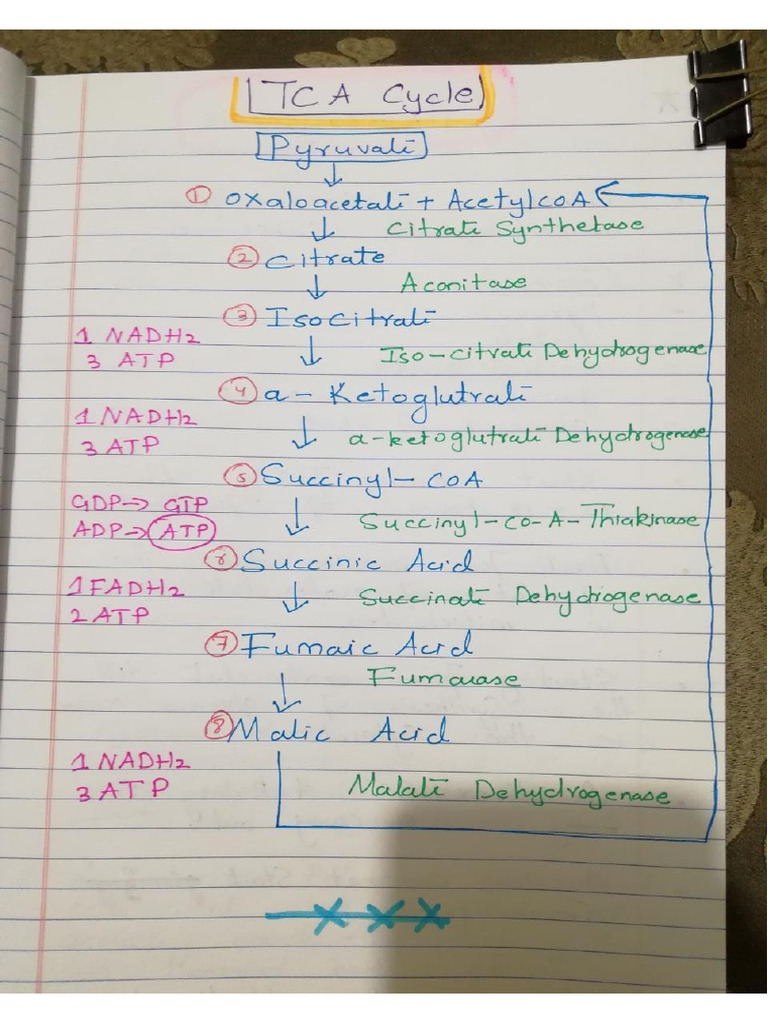 TCA Cycle
Pyruvate
① Oxaloacetate + AcetylCoA
Citrate Synthetase
② Citrate
Aconitase
③ Isocitrate
1 NADH2
3 ATP
Iso-citrate Dehydrogenase
④ a - Ketoglutrate
1 NADH2
3 ATP
a-ketoglutrate Dehydrogenase
⑤ Succinyl - COA
GDP → GTP
ADP → ATP
Succinyl-Co-A-Thiakinase
⑥ Succinic Acid
1 FADH2
2 ATP
Succinate Dehydrogenase
⑦ Fumaric Acid
Fumarase
⑧ Malic Acid
1 NADH2
3 ATP
Malate Dehydrogenase